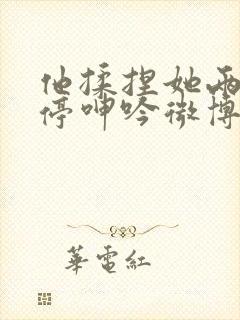 他揉捏她两
停呻吟微博
華電紅